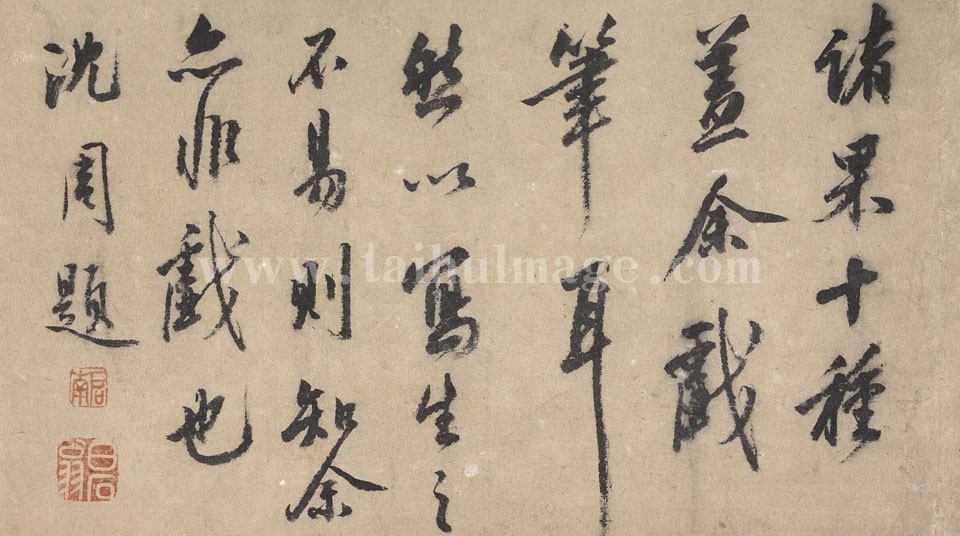 诸果十種
蓋余戲
筆耳
然以寫生之
不易則知余
亦非戲也
沈周題
啓南
白石翁
www.taihuImage.com